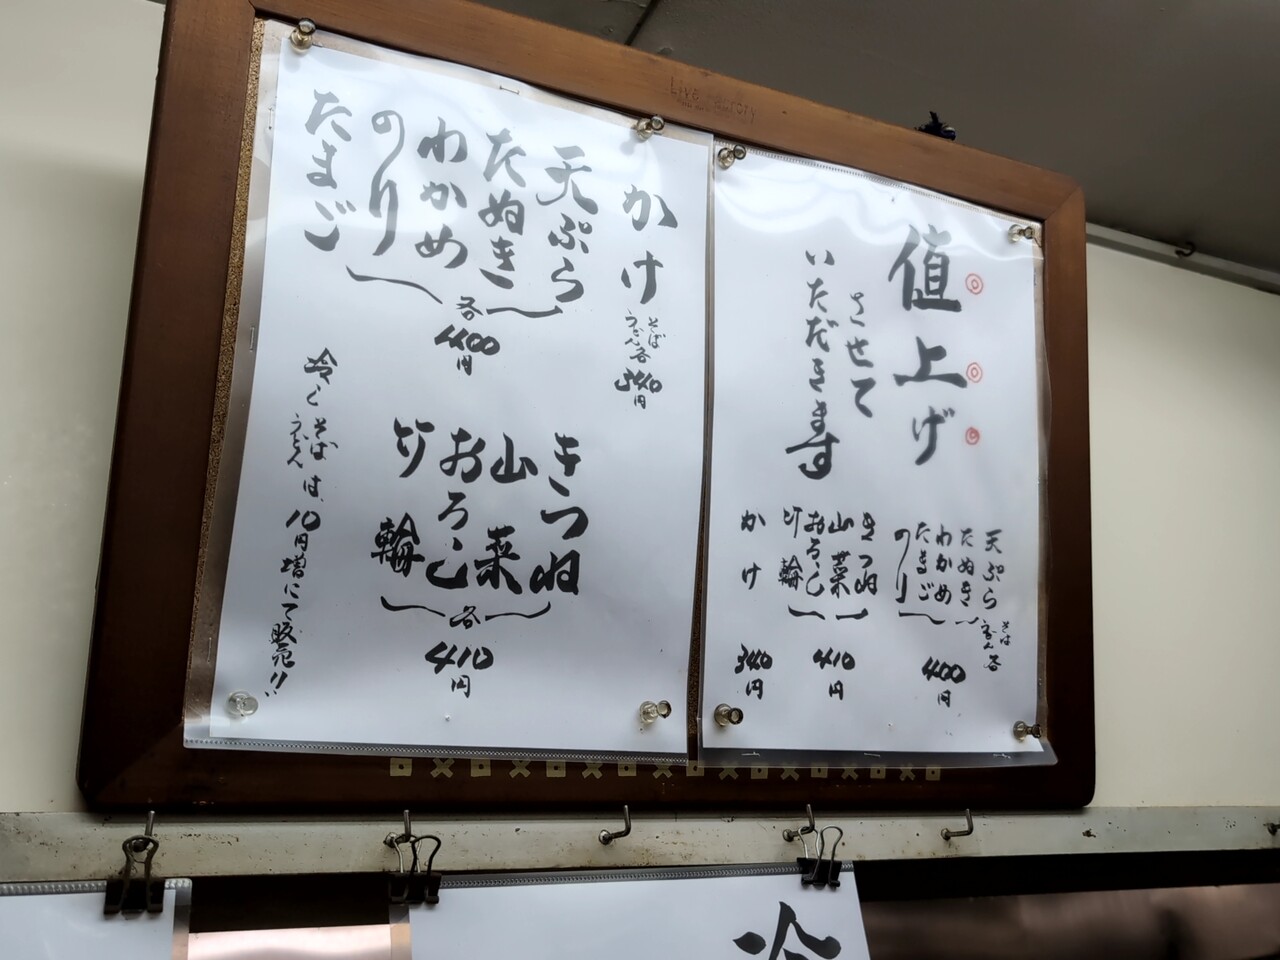 値上げ
させて
いただきます
天ぷら
たぬき
わかめ
たまご
のり
そば
うどん各
400円
きつね
山菜
おろし
竹輪
410円
かけ
340円
かけ
そば
うどん各
340円
天ぷら
たぬき
わかめ
のり
たまご
各
400円
きつね
山菜
おろし
竹輪
各
410円
冷しそば
うどん
は、10円増にて販売!!
冷